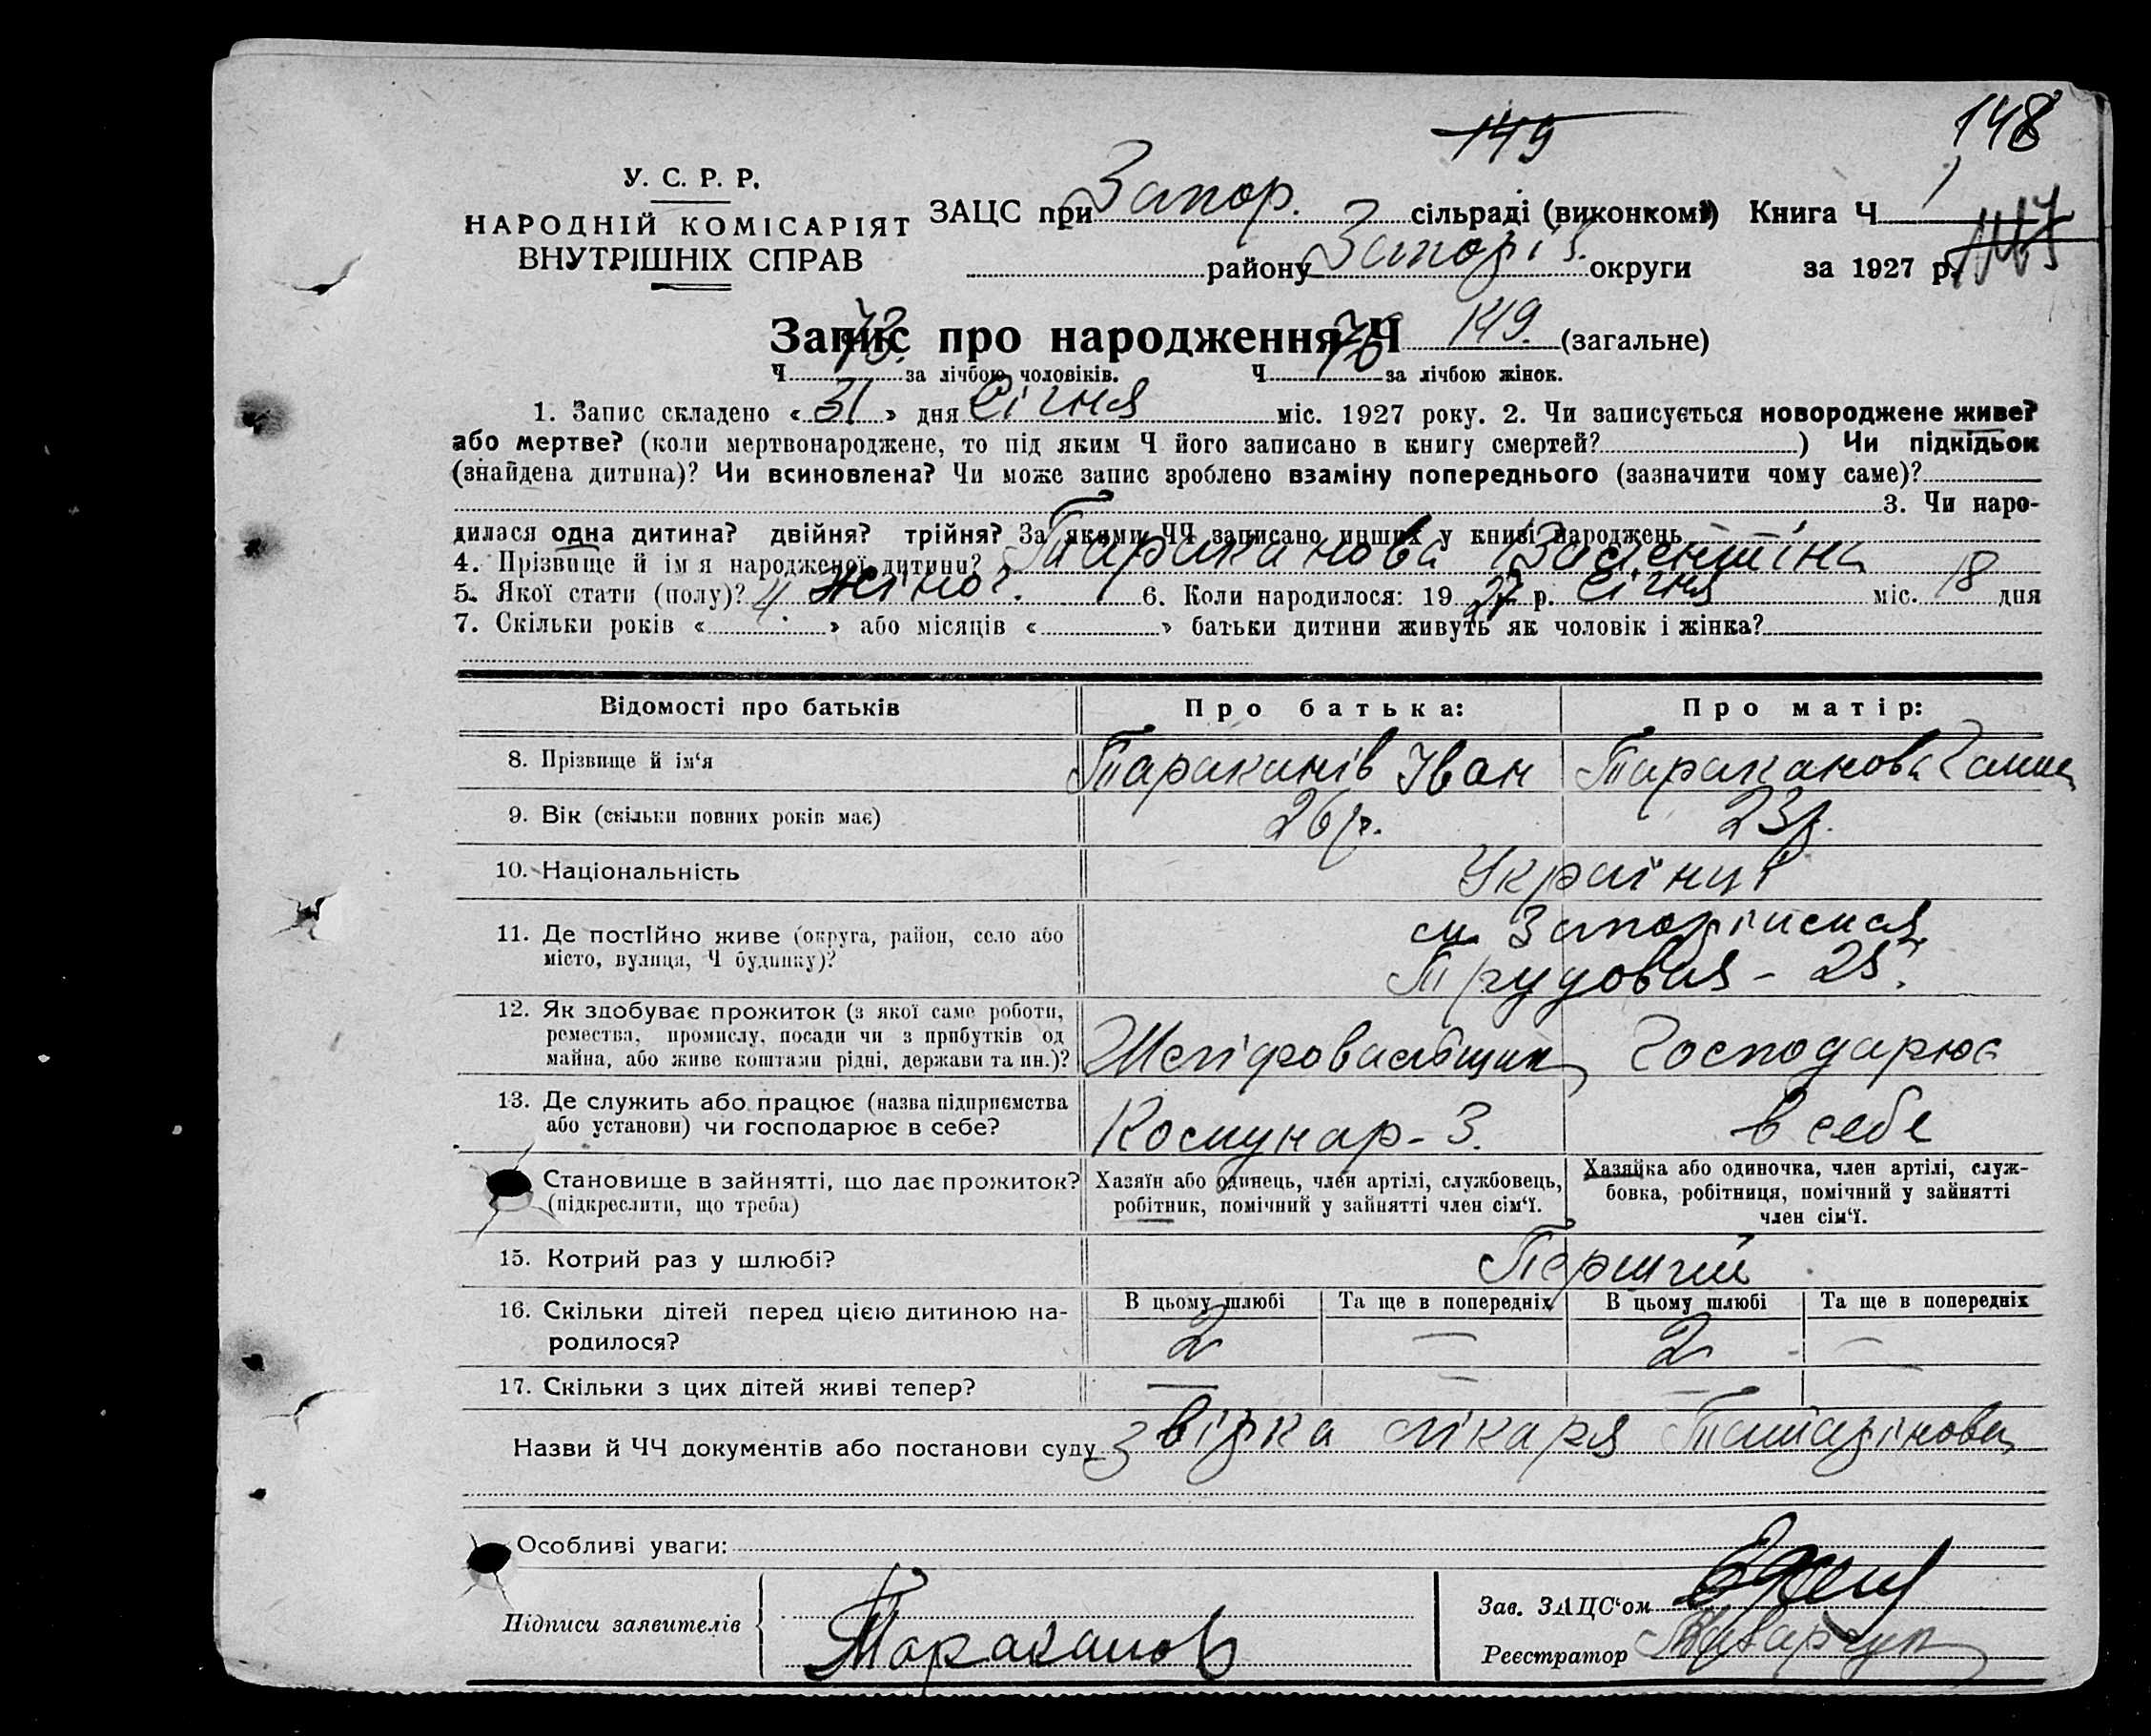 148
149
У. С. Р. Р.
НАРОДНІЙ КОМІСАРІЯТ
ВНУТРІШНІХ СПРАВ
ЗАЦС при Запор. сільраді (виконкомі) Книга Ч 1
району Запоріз. округи за 1927 р.
Запис про народження Ч 149. (загальне)
Ч 73. за лічбою чоловіків. Ч 76 за лічбою жінок.
1. Запис складено « 31 » дня Січня міс. 1927 року. 2. Чи записується новороджене живе?
або мертве? (коли мертвонароджене, то під яким Ч його записано в книгу смертей? ) Чи підкідьок
(знайдена дитина)? Чи всиновлена? Чи може запис зроблено взаміну попереднього (зазначити чому саме)?
3. Чи наро-
дилася одна дитина? двійня? трійня? За якими ЧЧ записано инших у книзі народжень
4. Прізвище й ім я народженої дитини? Тараканова Валентіна
5. Якої стати (полу)? жіноч. 6. Коли народилося: 19 27 р. Січня міс. 18 дня
7. Скільки років « 4 » або місяців « » батьки дитини живуть як чоловік і жінка?
Відомості про батьків Про батька: Про матір:
8. Прізвище й ім‘я Тараканів Іван Тараканова Галина
9. Вік (скільки повних років має) 26 р. 23 р.
10. Національність Українці
11. Де постійно живе (округа, район, село або
місто, вулиця, Ч будинку)?
м. Запоріжжя
Трудовая - 25.
12. Як здобуває прожиток (з якої саме роботи,
ремества, промислу, посади чи з прибутків од
майна, або живе коштами рідні, держави та ин.)?
Шліфовальщик Господарює
13. Де служить або працює (назва підприємства
або установи) чи господарює в себе?
Комунар - 3. в себе
Становище в зайнятті, що дає прожиток?
(підкреслити, що треба)
Хазяїн або одинець, член артілі, службовець,
робітник, помічний у зайнятті член сім‘ї.
Хазяйка або одиночка, член артілі, служ-
бовка, робітниця, помічний у зайнятті
член сім‘ї.
15. Котрий раз у шлюбі? Перший
16. Скільки дітей перед цією дитиною на-
родилося?
В цьому шлюбі Та ще в попередніх В цьому шлюбі Та ще в попередніх
2 — 2 —
17. Скільки з цих дітей живі тепер? — — — —
Назви й ЧЧ документів або постанови суду Звірка лікаря
Особливі уваги:
Підписи заявителів Тараканов
Зав. ЗАЦС‘ом
Реєстратор